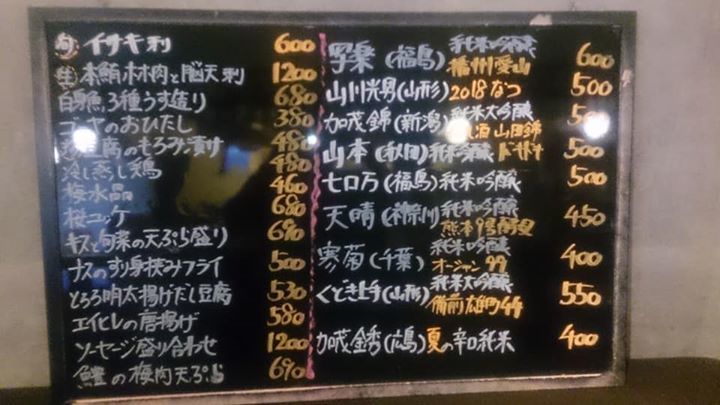 旬 イサキ刺 600
生 本鮪ホホ肉と脳天刺 1200
白身魚3種うす造り 680
ゴーヤのおひたし 380
豆腐のもろみ漬け 480
冷し蒸し鶏 480
梅水晶 460
桜ユッケ 680
キスと旬菜の天ぷら盛り 690
ナスのすり身挟みフライ 500
とろろ明太揚げだし豆腐 530
エイヒレの唐揚げ 580
ソーセージ盛り合わせ 1200
鱧の梅肉天ぷら 690
写楽(福島)純米吟醸 600
播州愛山
山川光男(山形)2018なつ 500
加茂錦(新潟)純米大吟醸
酒 山田錦
山本(秋田)純米吟醸 ドキドキ 500
七ロ万(福島)純米吟醸 500
天晴(神奈川)純米吟醸 450
熊本9号酵母
寒菊(千葉)純米吟醸 400
オーシャン99
くどき上手(山形)純米大吟醸 550
備前雄町44
加茂金秀(広島)夏の辛口純米 400